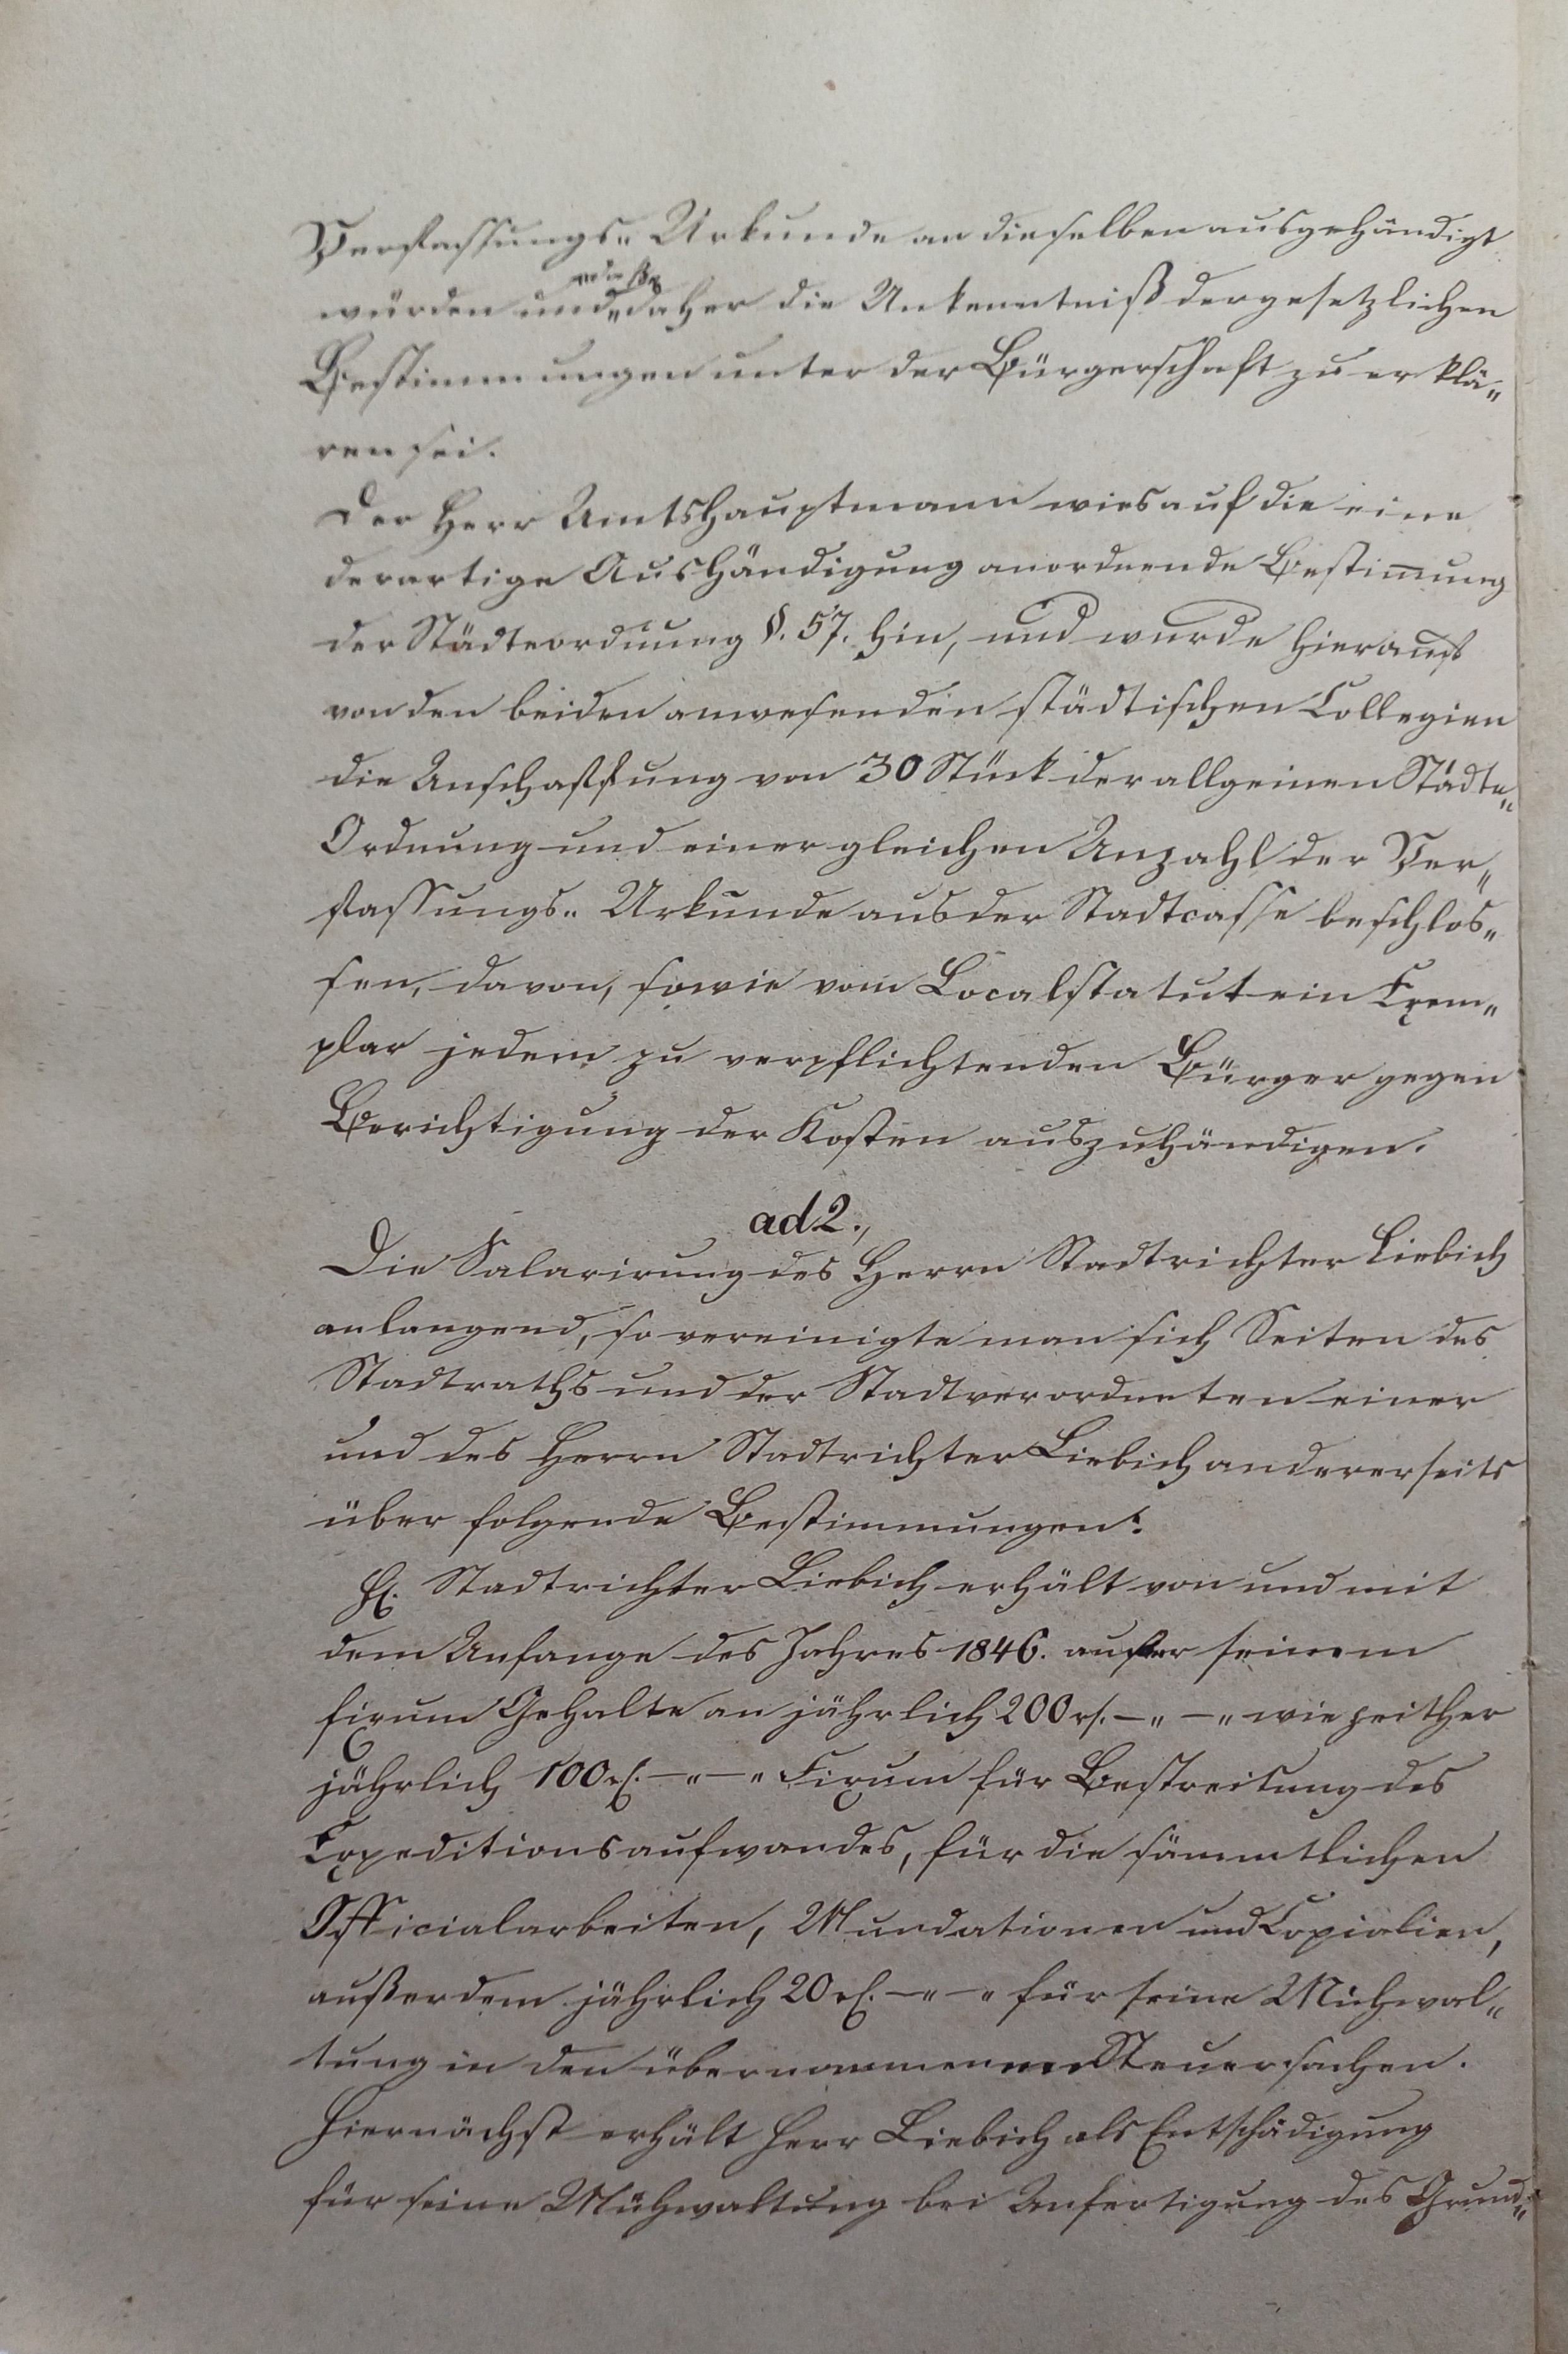 Verfassungs„ Urkunde an dieselben ausgehändigt
würden und daher die Unkenntniß der gesetzlichen
Bestimmungen unter der Bürgerschaft zu erklä„
ren sei.
Der Herr Amtshauptmann wies auf die eine
derartige Aushändigung anordnende Bestim̅ung
der Städteordnung §. 57. hin, und wurde hierauf
von den beiden anwesenden städtischen Collegien
die Anschaffung von 30 Stück der allgeinen Städte„
Ordnung und einer gleichen Anzahl der Ver„
fassungs„ Urkunde aus der Stadtcasse beschlos„
sen, davon, sowie vom Localstatut ein Exem„
plar jedem zu verpflichtenden Bürger gegen
Berichtigung der Kosten auszuhändigen.
ad 2.,
Die Salarirung des Herrn Stadtrichter Liebich
anlangend, so vereinigte man sich Seiten des
Stadtraths und der Stadtverordneten einer
und des Herrn Stadtrichter Liebich andererseits
über folgende Bestimmungen:
H. Stadtrichter Liebich erhält von und mit
dem Anfange des Jahres 1846. außer seinem
fixum Gehalte an jährlich 200 rl. —„ —„ wie zeither
jährlich 100 rl. —„ —„ Fixum für Bestreitung des
Expeditionsaufwandes, für die sämmtlichen
Officialarbeiten, Mundationen und Copialien,
außerdem jährlich 20 rl. —„ —„ für seine Mühwal„
tung in den übernommenen Steuersachen.
Hiernächst erhält Herr Liebich als Entschädigung
für seine Mühwaltung bei Anfertigung des Grund„